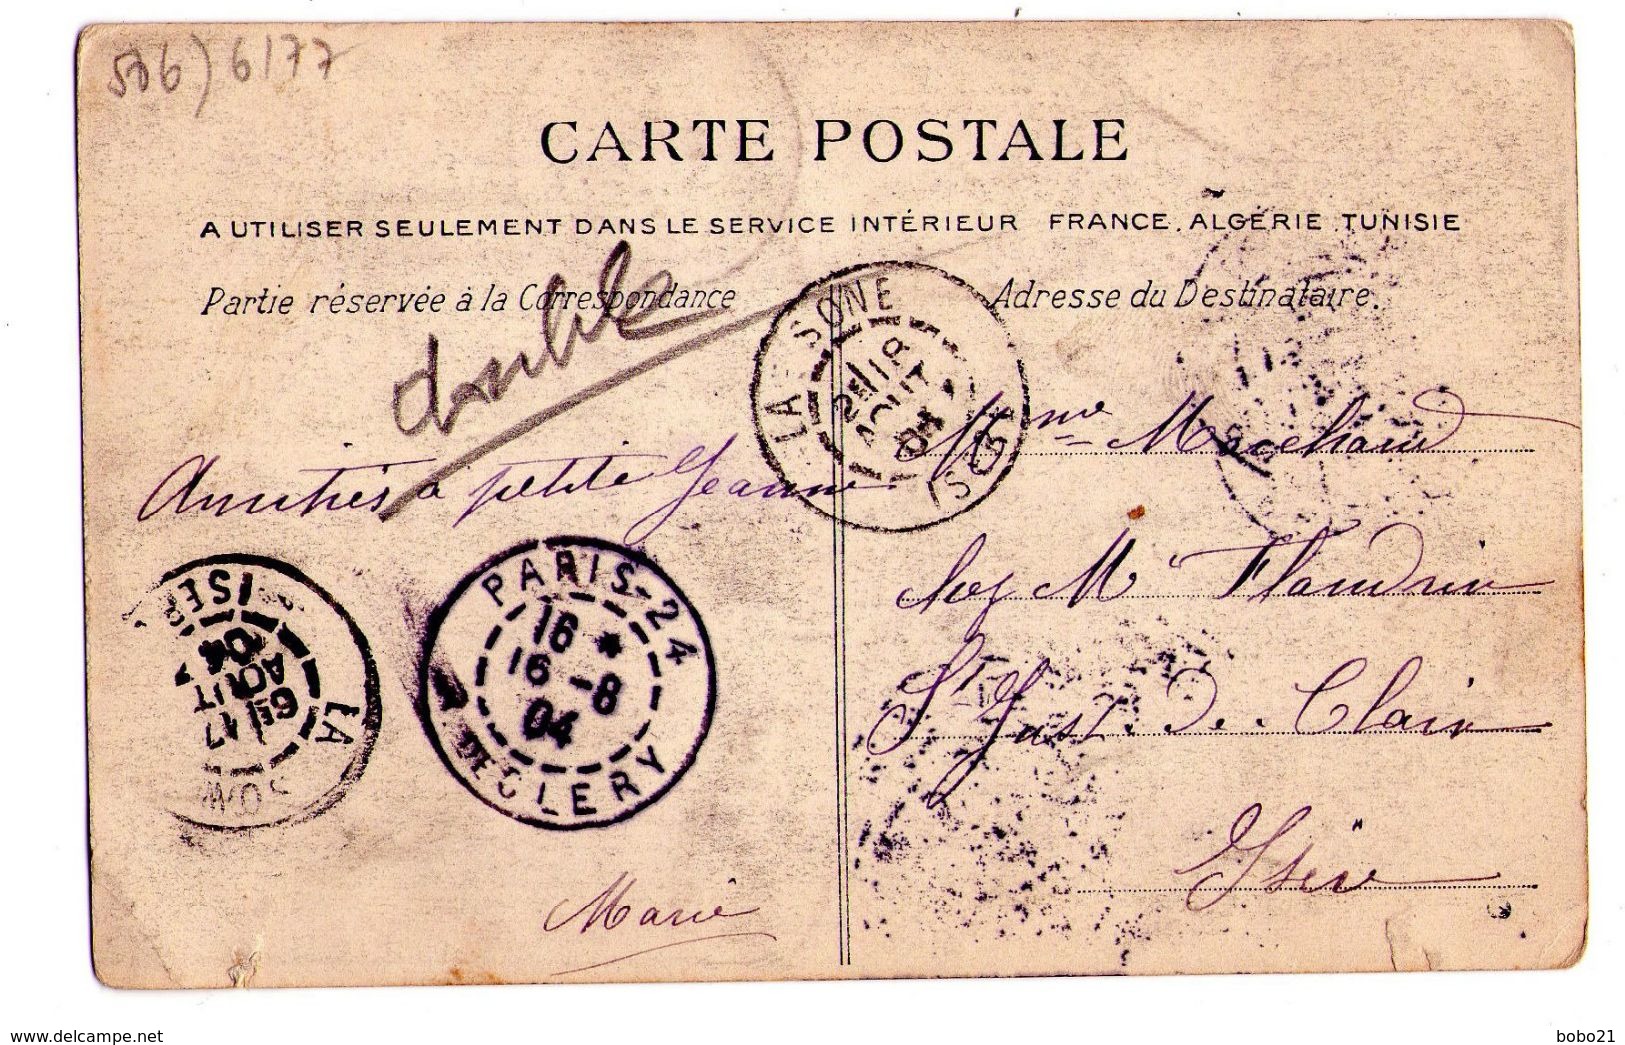 6177
CARTE POSTALE
A UTILISER SEULEMENT DANS LE SERVICE INTÉRIEUR FRANCE, ALGERIE TUNISIE
Partie réservée à la Correspondance
Adresse du Destinataire.
double
LA SONE
AOUT
04
ISERE
Amitiés à petite Jeanne
Mme Marchand
chez M Flandrin
St Just. De. Claix
Isère
PARIS-24
16 *
16 -8
04
R. DE CLERY
LA SONE
6E 17
AOUT
04
ISERE
Marie
delcampe.net
bobo21